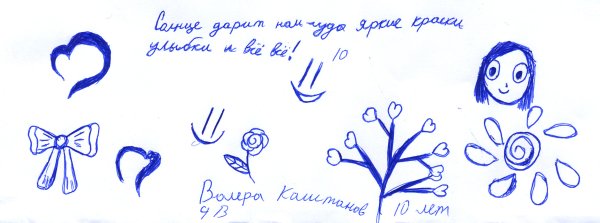 Солнце дарит нам чуда яркие краски
улыбки и всё всё!
10
Валера Каштанов 10 лет
4 В